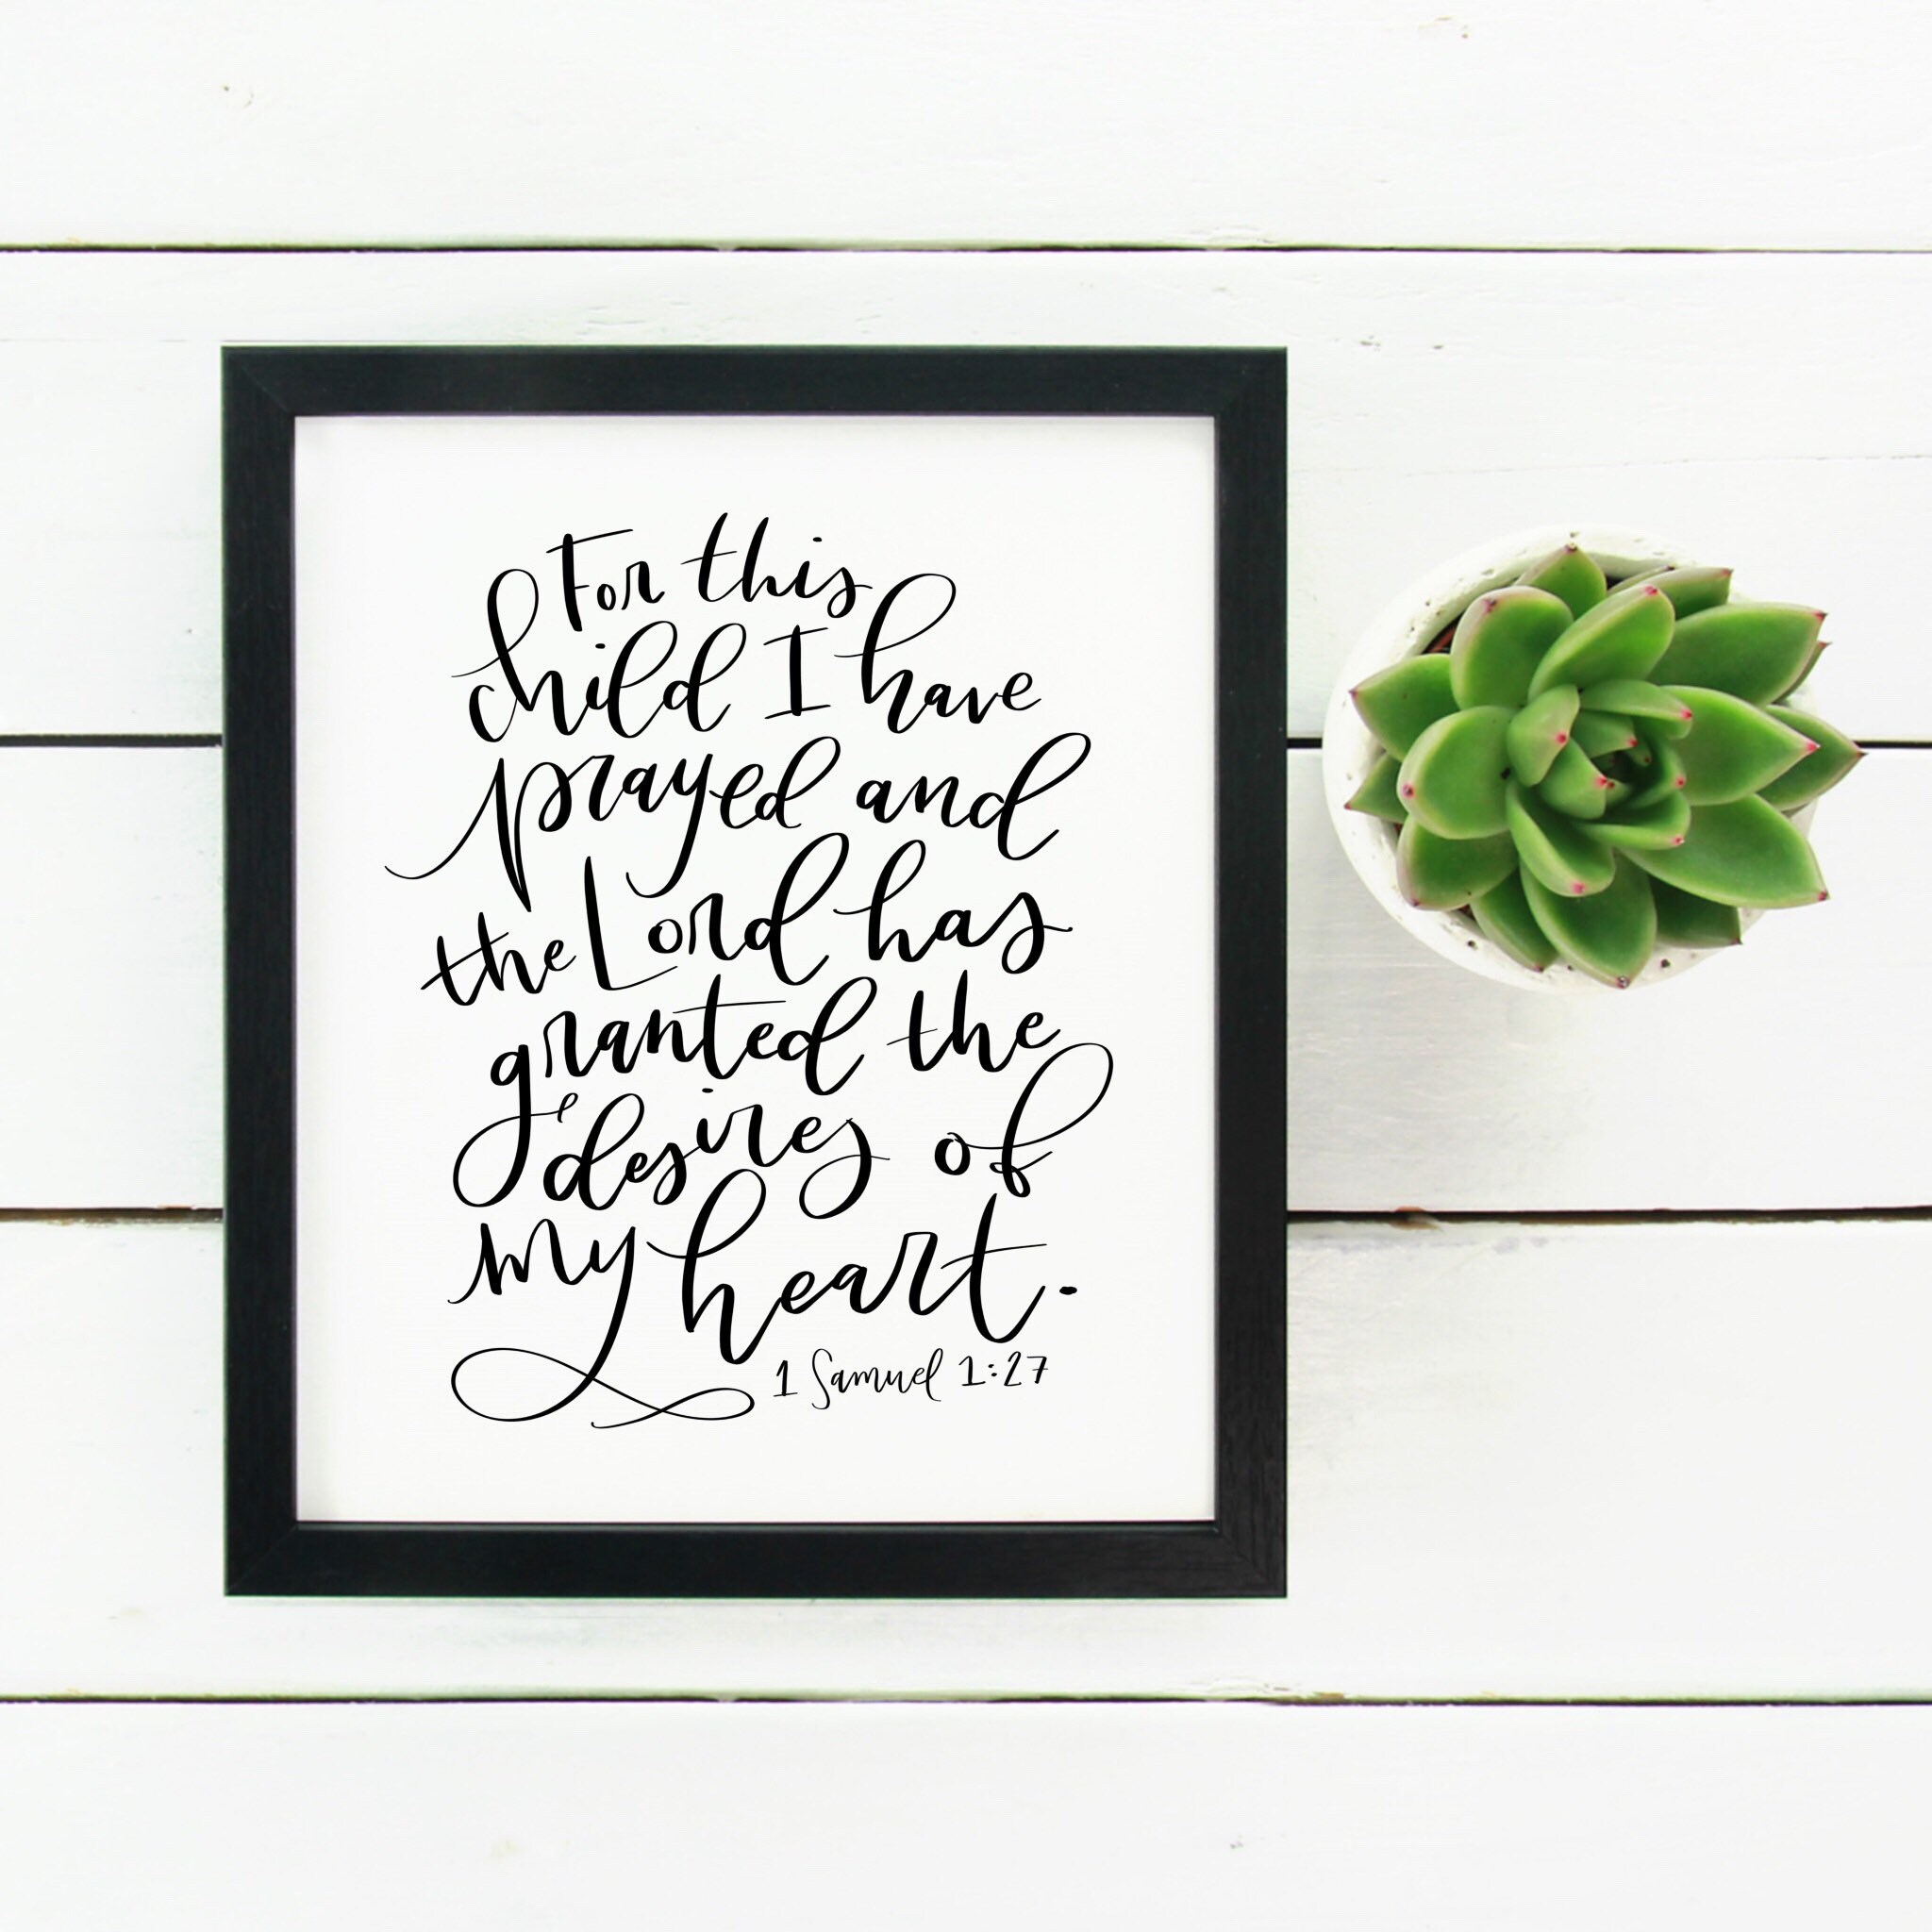 For this
child I have
prayed and
the Lord has
granted the
desires of
my heart.
1 Samuel 1:27